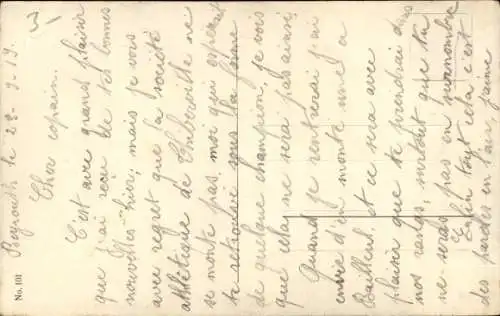 Beyrouth le 28-9-19
Cher copain.
C'est avec grand plaisir
que j'ai reçu de tes bonnes
nouvelles hier, mais je vois
avec regret que la société
athlétique de ne
se monte pas, moi qui espérait
te retrouver sous la forme
de quelque champion, je vois
que cela ne sera pas ainsi.
Quand je rentrerai j'ai
envie d'en monté une à
Bailleul, et ce sera avec
plaisir que je te prendrai dans
nos rangs, surtout que tu
ne seras pas en surnombre
Enfin tout cela c'est
des paroles en l'air, j'aime
No. 101